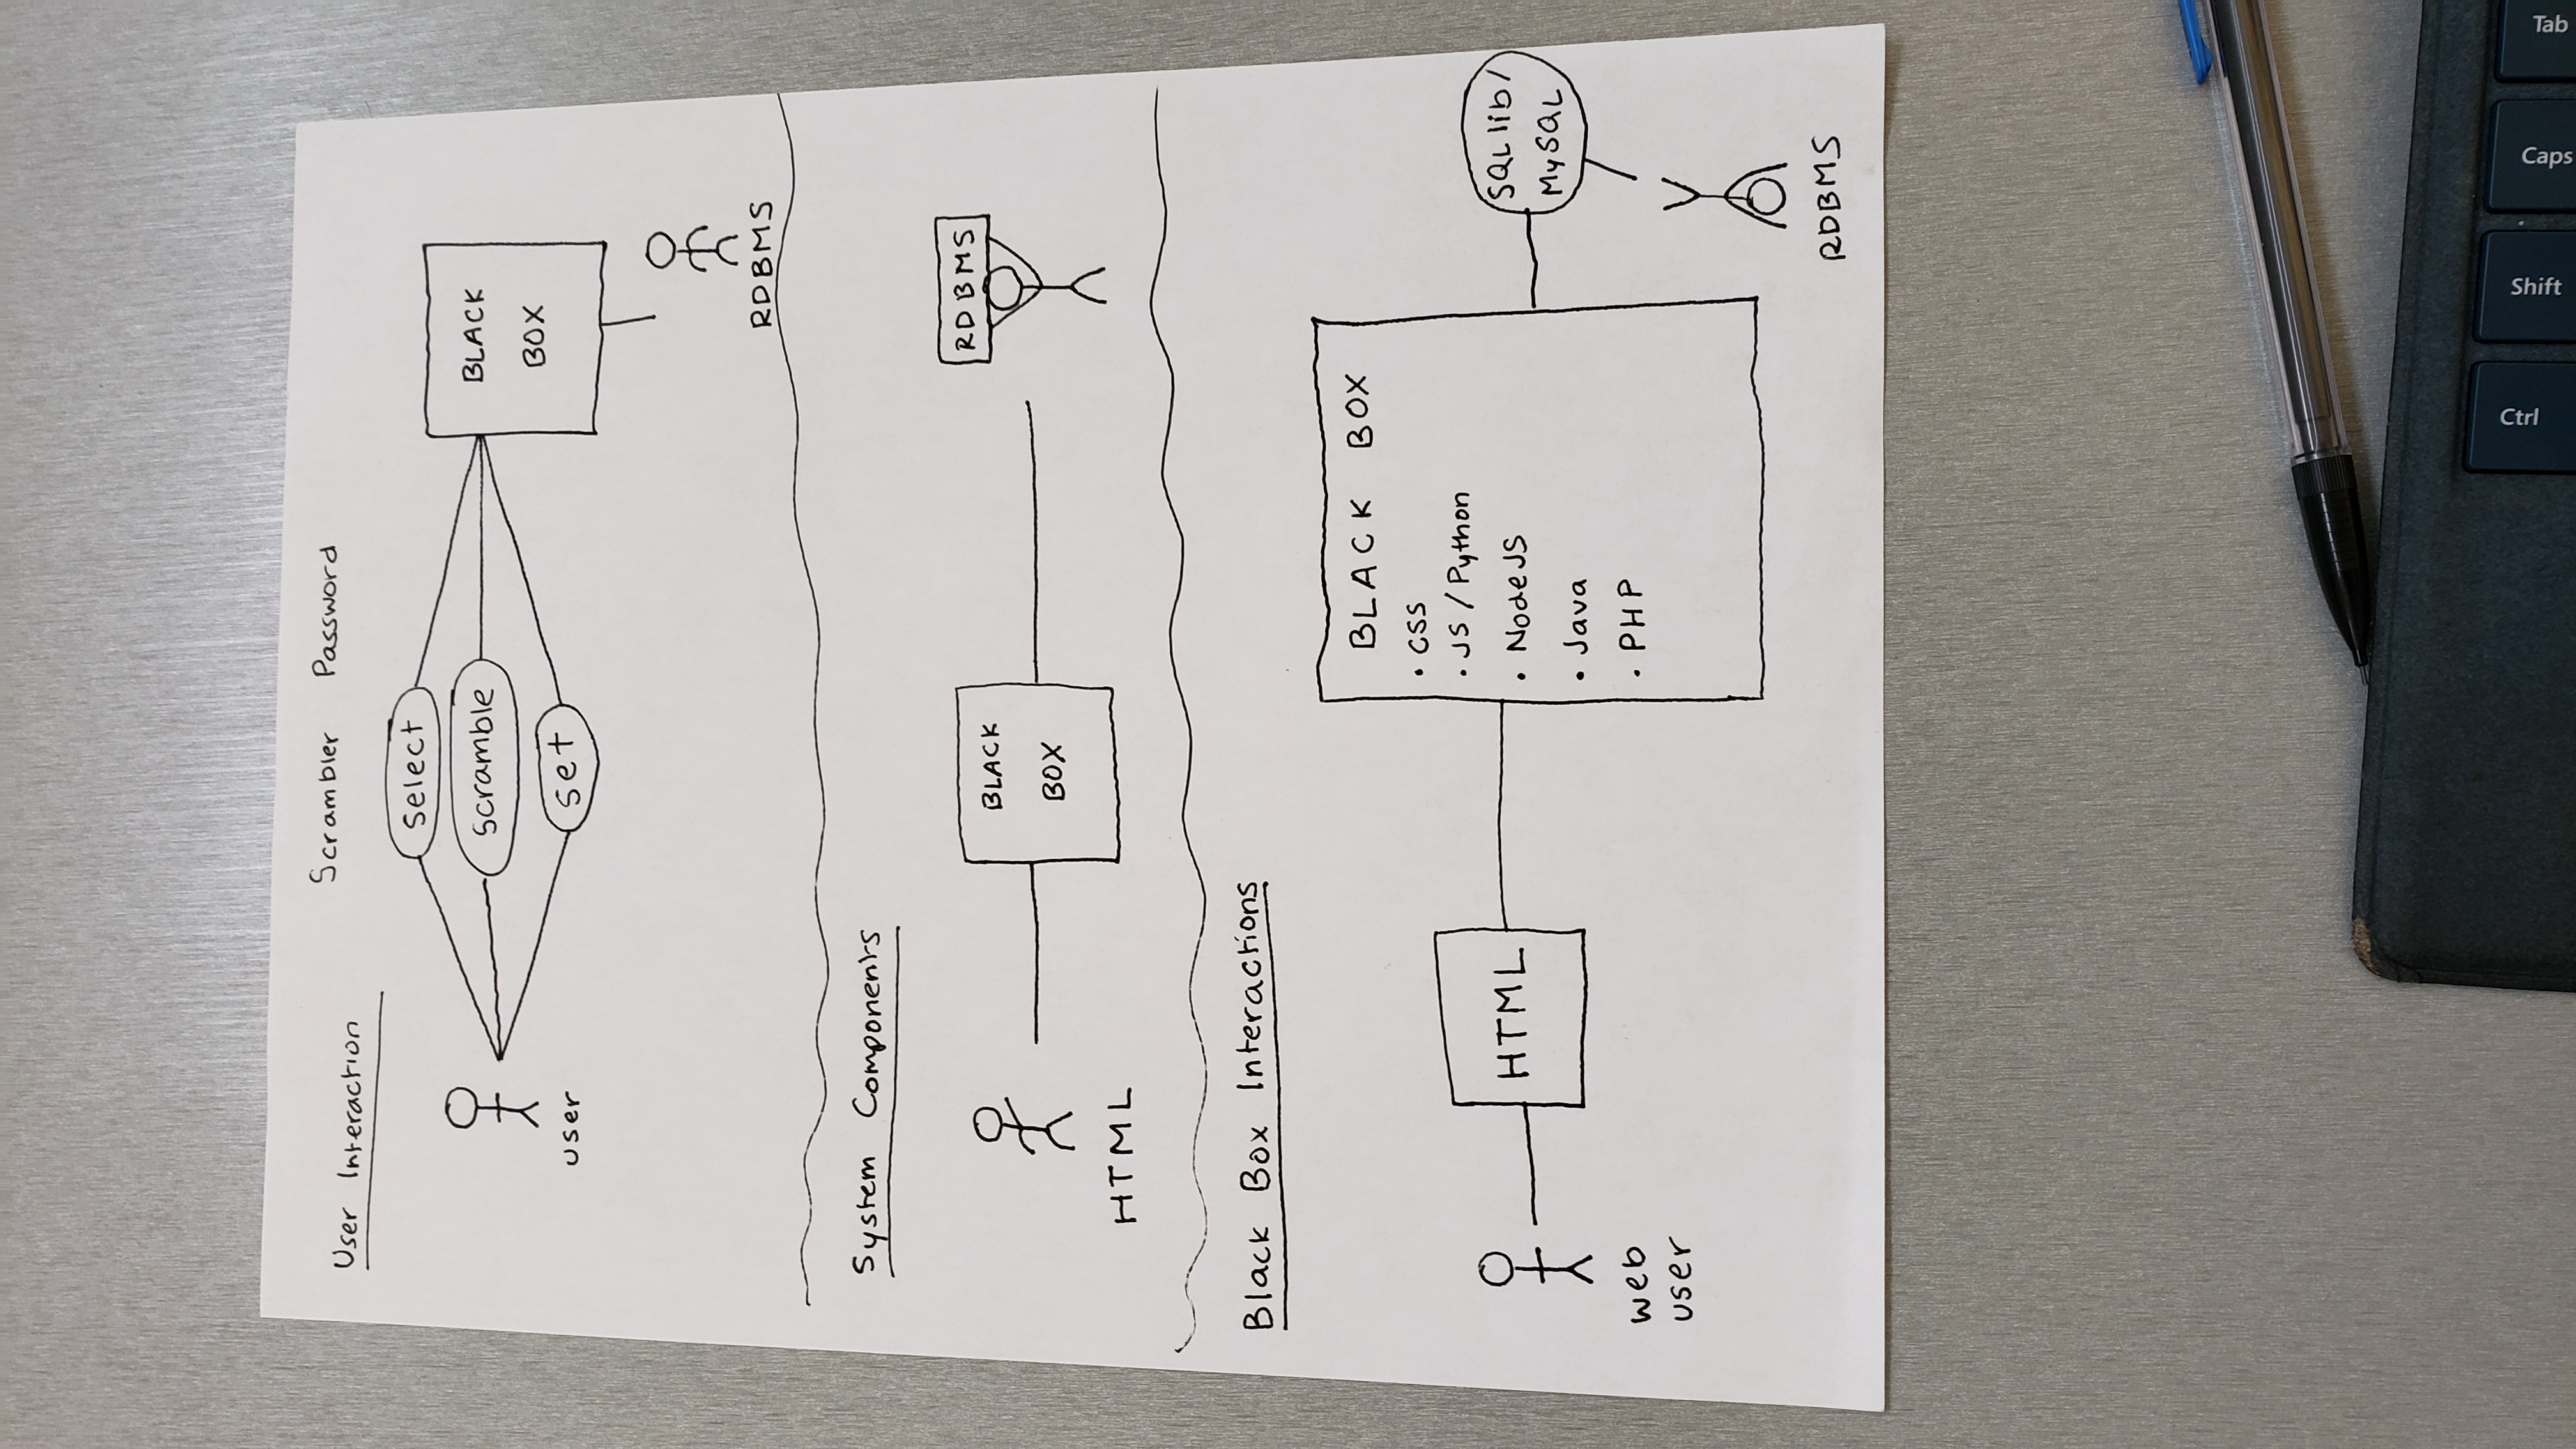 Scrambler Password
User Interaction
select
scramble
set
user
BLACK
BOX
RDBMS
System Components
HTML
BLACK
BOX
RDBMS
Black Box Interactions
web
user
HTML
BLACK BOX
• CSS
• JS / Python
• NodeJS
• Java
• PHP
SQL lib /
MySQL
RDBMS
Ctrl
Shift
Caps
Tab